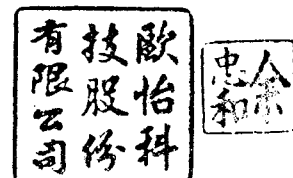 歐怡科
技股份
有限公司
余
忠和